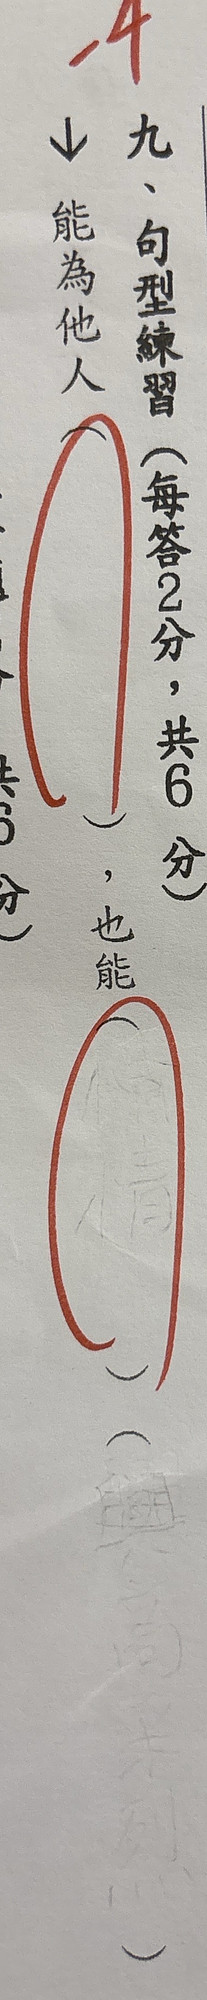 -4
九、句型練習（每答2分，共6 分）
↓能為他人（ ），也能（ ）（ ）
共6 分）